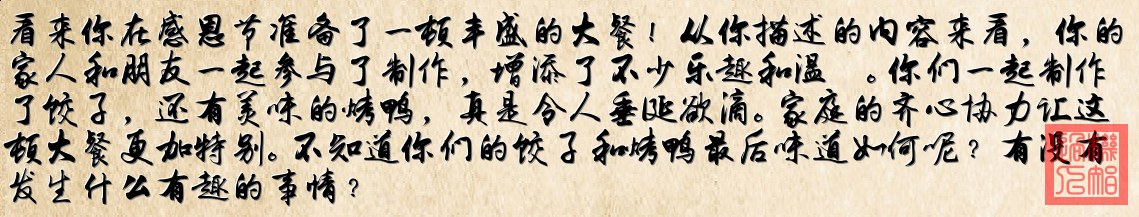 看来你在感恩节准备了一顿丰盛的大餐！从你描述的内容来看，你的
家人和朋友一起参与了制作，增添了不少乐趣和温 。你们一起制作
了饺子，还有美味的烤鸭，真是令人垂涎欲滴。家庭的齐心协力让这
顿大餐更加特别。不知道你们的饺子和烤鸭最后味道如何呢？有没有
发生什么有趣的事情？